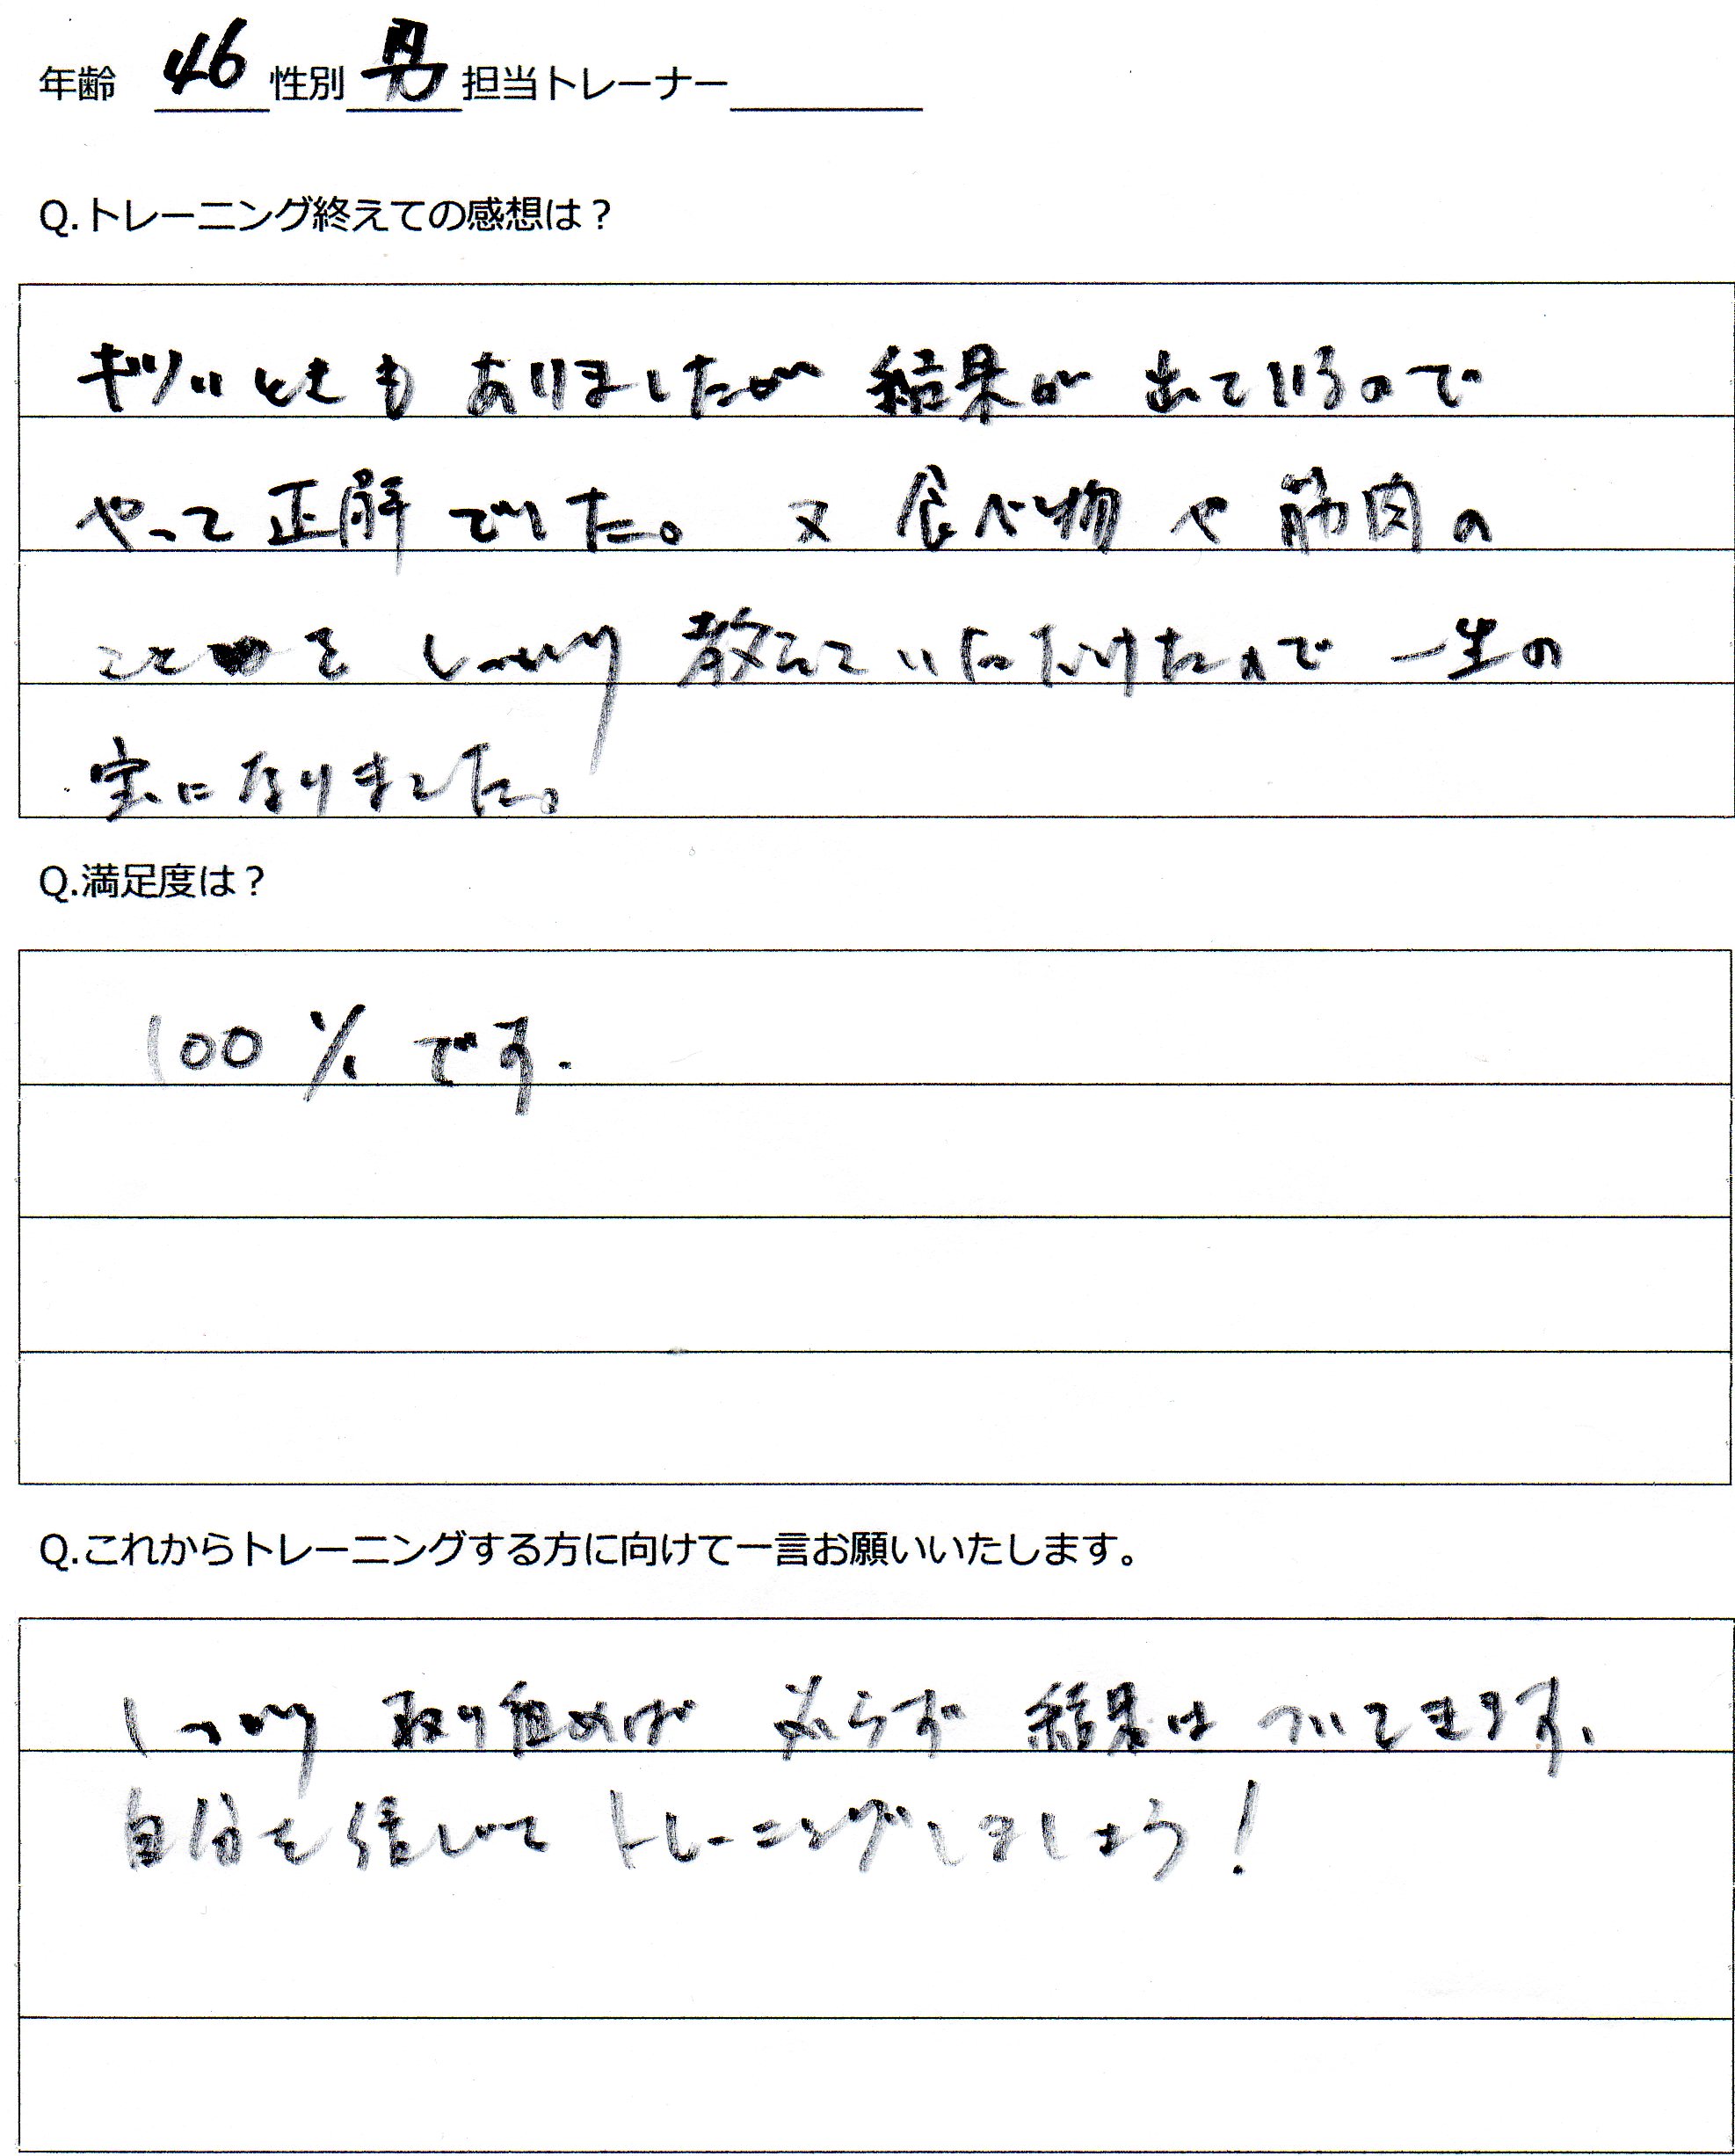 年齢 46 性別 男 担当トレーナー
Q.トレーニング終えての感想は？
キツいときも ありましたが 結果が 出ているので
やって 正解 でした。 又 食べ物 や 筋肉の
ことを しっかり 教えて いただけたので 一生の
宝になりました。
Q.満足度は？
100 % です.
Q.これからトレーニングする方に向けて一言お願いいたします。
しっかり 取り組めば 必らず 結果は ついてきます、
自分を信じて トレーニングしましょう！